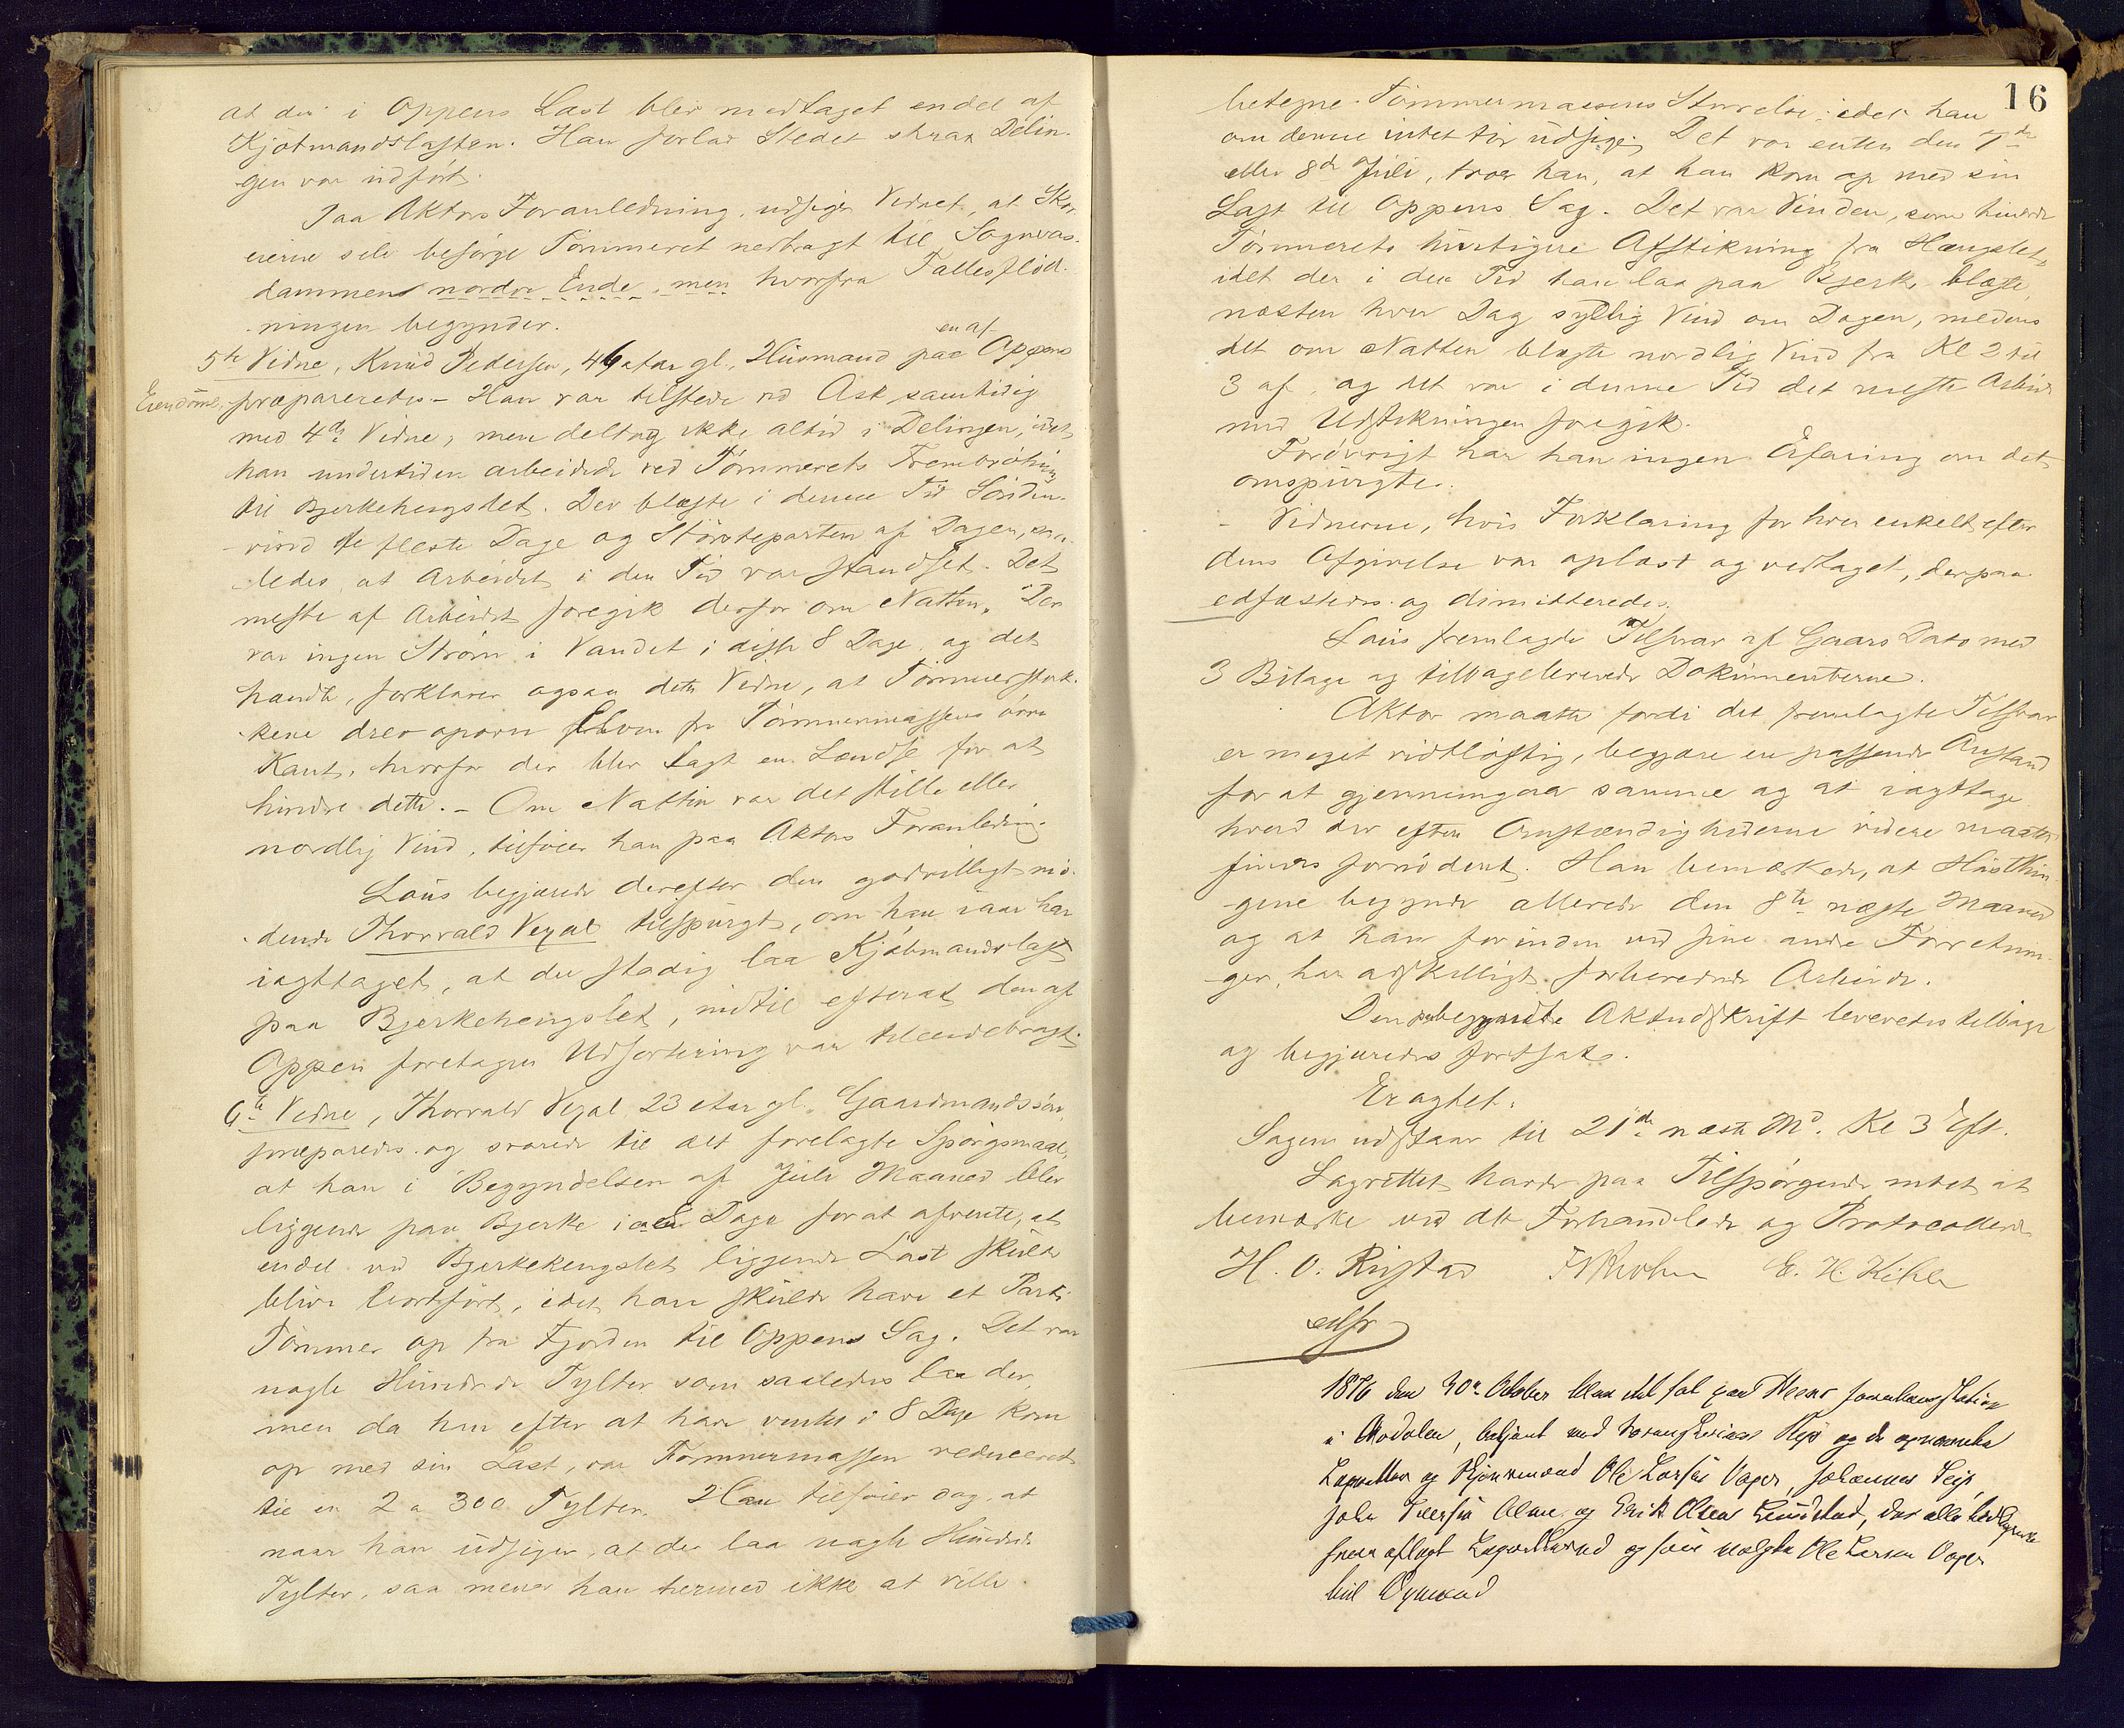 at der i Oppens Last blev medtaget endel af
Kjøbmandslasten. Han forlod Stedet strax Delin-
gen var udført.
Paa Aktors Foranledning udsiger Vidnet, at Skov-
eierne selv besørge Tømmeret nedbragt til Sognevas-
dammens nordre Ende, men hvorfra Fællesflød-
ningen begynder.
5te Vidne, Knud Pedersen, 46 Aar gl., Husmand paa en af Oppens
Eiendomme, præpareredes. – Han var tilstede ved Ask samtidig
med 4de Vidne, men deltog ikke altid i Delingen, idet
han undertiden arbeidede ved Tømmerets Fremdrivning
til Bjerkehengslet. Der blæste i denne Tid Sønden-
vind de fleste Dage og Størsteparten af Dagen, saa-
ledes at Arbeidet i den Tid var standset. Det
meste af Arbeidet foregik derfor om Natten. Der
var ingen Strøm i Vandet i disse 8 Dage, og det
hændte, forklarer ogsaa dette Vidne, at Tømmerstok-
kene drev opover Elven fra Tømmermassens øvre
Kant, hvorfor der blev lagt en Lændse for at
hindre dette. – Om Natten var det stille eller
nordlig Vind, tilføier han paa Aktors Foranledning.
Lous begjærede derefter den godvilligt mø-
dende Thorvald Vegal tilspurgt, om han iaar har
iagttaget, at der stadig laa Kjøbmandslast
paa Bjerkehengslet, indtil efterat den af
Oppen foretagne Udsortering var tilendebragt.
6te Vidne, Thorvald Vegal 23 Aar gl. Gaardmandssøn,
præparedes og svarede til det forelagte Spørgsmaal,
at han i Begyndelsen af Juli Maaned blev
liggende paa Bjerke i 8 Dage for at afvente, at
endel ved Bjerkehengslet liggende Last skulde
blive bortført, idet han skulde have et Parti
Tømmer op fra Fjorden til Oppens Sag. Det var
nogle Hundrede Tylter som saaledes laa der,
men da han efter at have ventet i 8 Dage kom
op med sin Last, var Tømmermassen reduceret
til en 2 a 300 Tylter. Han tilføier dog, at
naar han udsiger, at der laa nogle Hundrede
Tylter, saa mener han hermed ikke at ville
16
betegne Tømmermassens Størrelse, idet han
om denne intet tør udsige. Det var enten den 7de
eller 8de Juli, troer han, at han kom op med sin
Last til Oppens Sag. Det var Vinden, som hindrede
Tømmerets hurtigere Afstikning fra Hængslet,
idet der i den Tid han laa paa Bjerke blæste
næsten hver Dag sydlig Vind om Dagen, medens
det om Natten blæste nordlig Vind fra Kl 2 til
3 af, og det var i denne Tid det meste Arbeide
med Udstikningen foregik.
Forøvrigt har han ingen Erfaring om det
omspurgte.
– Vidnerne, hvis Forklaring for hver enkelt efter
dens Afgivelse var oplæst og vedtaget, derpaa
edfæstedes og dimitteredes.
Lous fremlagde Tilsvar af Gaars Dato med
3 Bilage og tilbageleverede Dokumenterne.
Aktor maatte fordi det fremlagte Tilsvar
er meget vidtløftig, begjære en passende Anstand
for at gjennemgaa samme og at iagttage
hvad der efter Omstændighederne videre maatte
findes fornødent. Han bemærkede, at Høstthin-
gene begynde allerede den 8de næste Maaned
og at han forinden ved sine andre Forretnin-
ger har adskilligt forberedende Arbeide.
Den begyndte Aktudskrift leveredes tilbage
og begjæredes fortsat.
Eragtet:
Sagen udstaar til 21de næste Md. Kl 3 Eft.
Lagrettet havde paa Tilspørgende intet at
bemærke ved det Forhandlede og Protocollerede
H. O. Rustad E. H. Kihle
1876 den 30te October blev Ret sat paa
i Modalen, betjent med Sorenskriver og de opnævnte
Lagrettes og Skjønsmænd Ole Larsen Vager, Johannes
John Iversen og Erik Olsen, der alle
aflagt Lagretteed og som valgte Ole Larsen Vager
til Ogmand